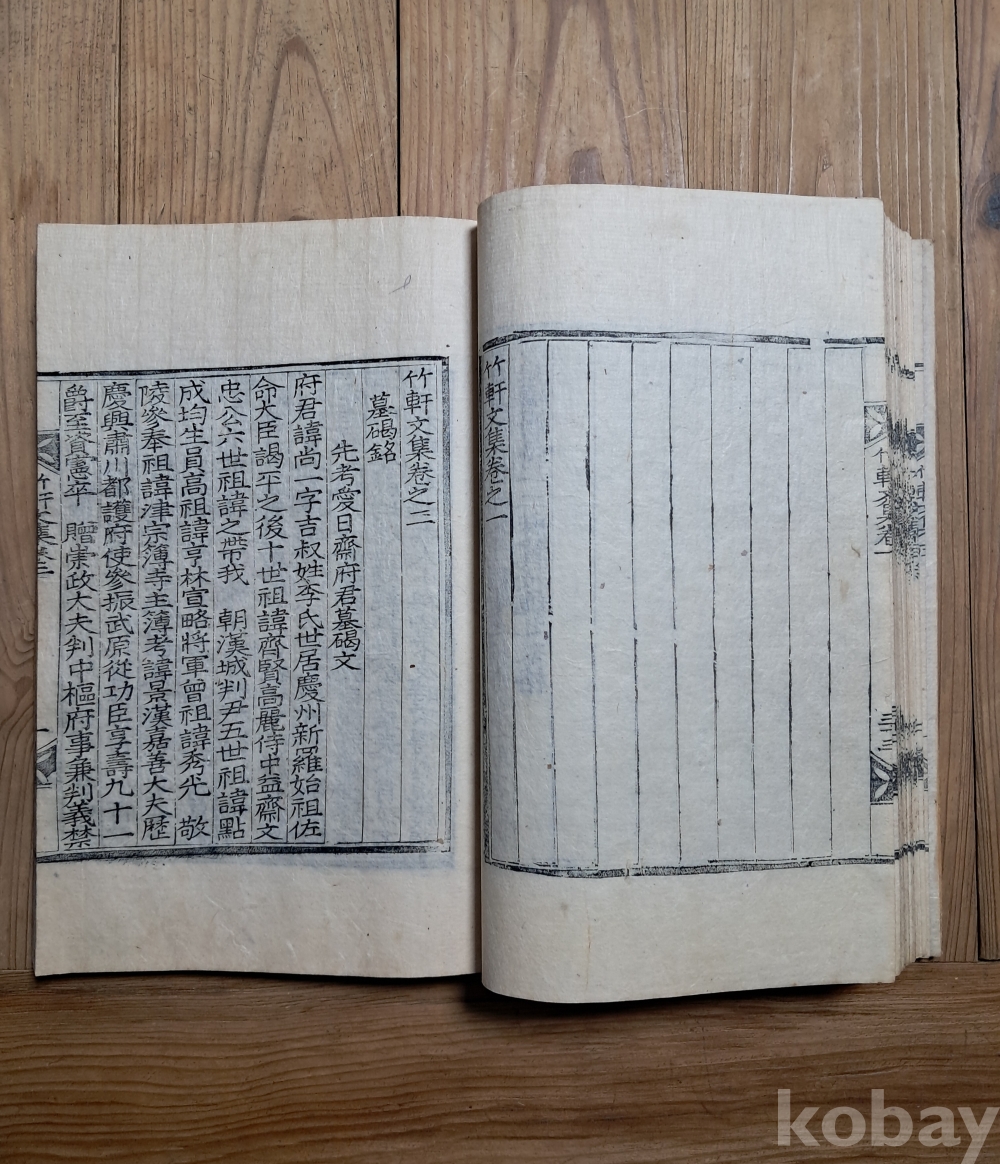 竹軒文集卷一
竹軒文集卷之一
竹軒文集卷之三
墓碣銘
先考愛日齋府君墓碣文
府君諱尚一字吉叔姓李氏世居慶州新羅始祖佐
命大臣謁平之後十世祖諱齊賢高麗侍中益齋文
忠公六世祖諱之帶我 朝漢城判尹五世祖諱點
成均生員高祖諱亨林宣略將軍曾祖諱秀光 敬
陵參奉祖諱津宗簿寺主簿考諱景漢嘉善大夫歷
慶興肅川都護府使參振武原從功臣享壽九十一
爵至資憲卒 贈崇政大夫判中樞府事兼判義禁
kobay